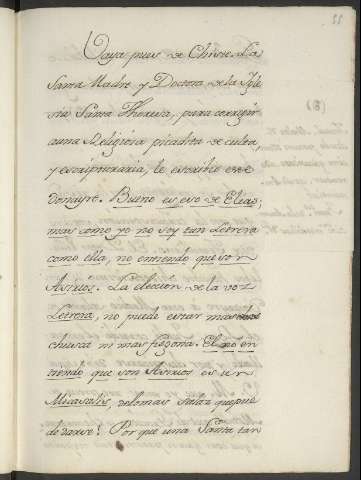 55
Vaya pues de Chiste. La
Santa Madre y Doctora de la Igle
sia Santa Theresa, para corregir
a una Religiosa picadita de culta,
y escripturaria, le escribio este
donayre. Bueno es eso de Elias;
mas como yo no soy tan Letrera
como ella, no entiendo que son
Asirios. La eleccion de la voz
Letrera, no puede estar mas
chusca ni mas fregona. El no en
tiendo que son Asirios es un
delo mas salaz que pue
de darse! Por que una Santa tan
(8)